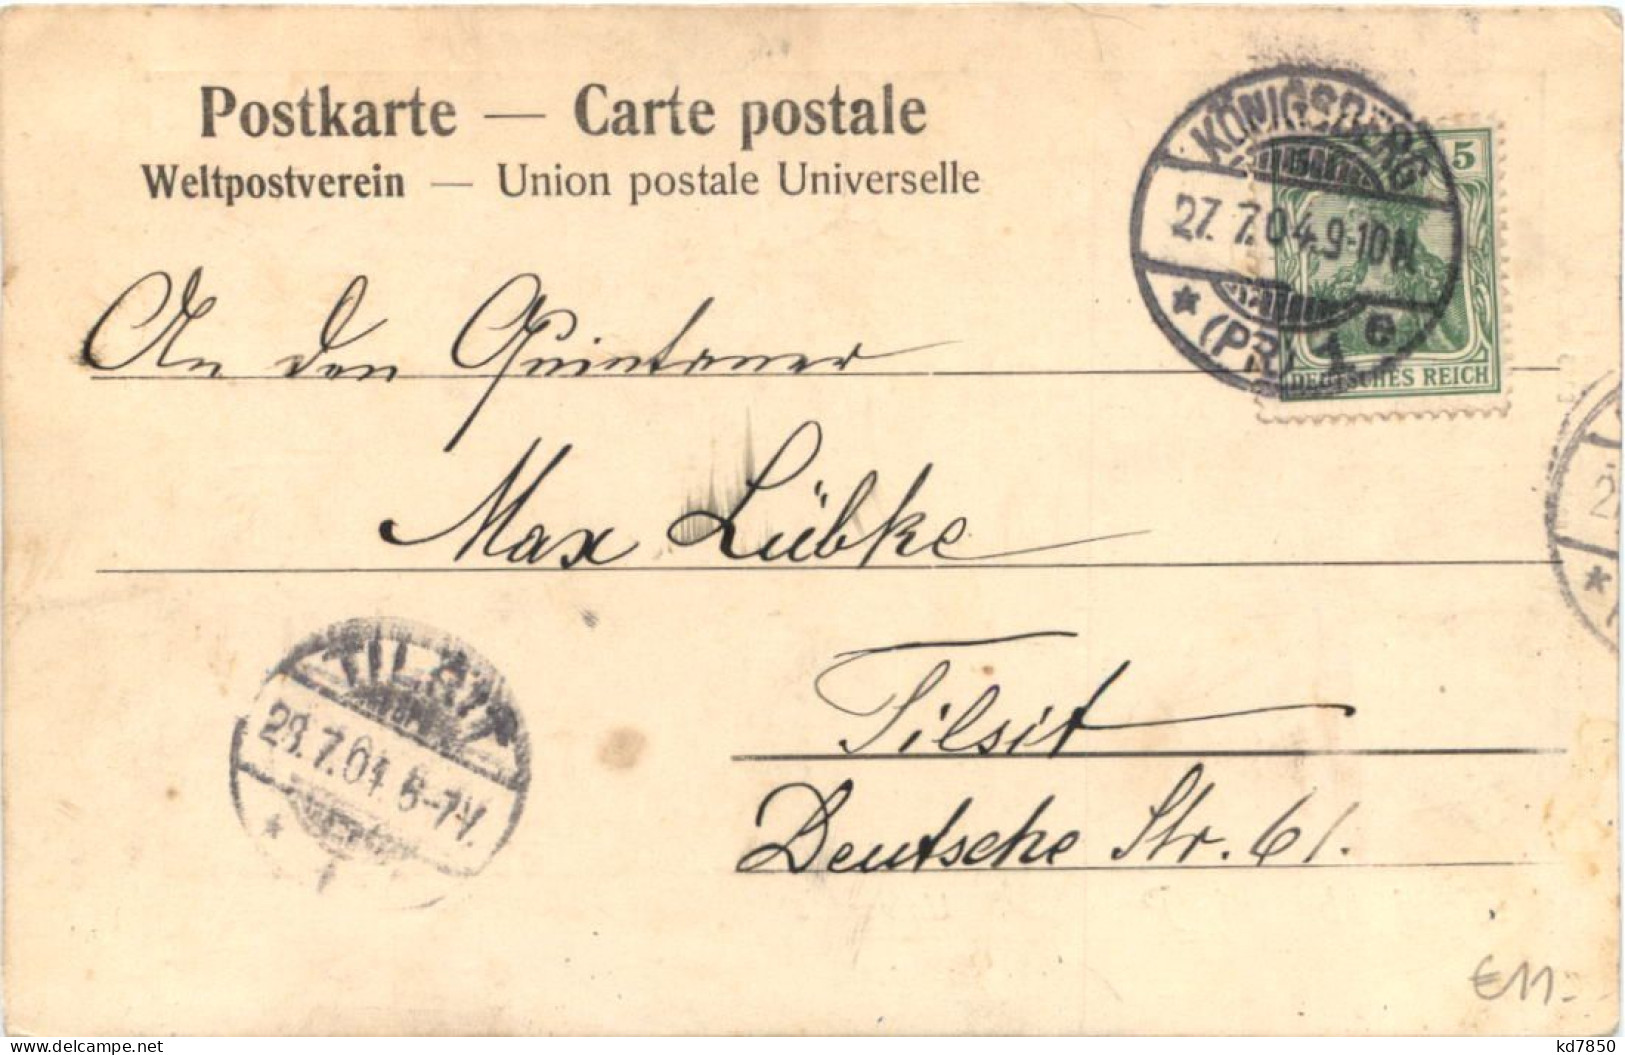 Postkarte — Carte postale
Weltpostverein — Union postale Universelle
KÖNIGSBERG
27.7.04.9-10N.
* (PR.) 1 e
5
DEUTSCHES REICH
An den Quintaner
Max Lübke
Tilsit
Deutsche Str. 61.
TILSIT
28.7.04. 6-7V.
*
2
*
€11.-
www.delcampe.net
kd7850